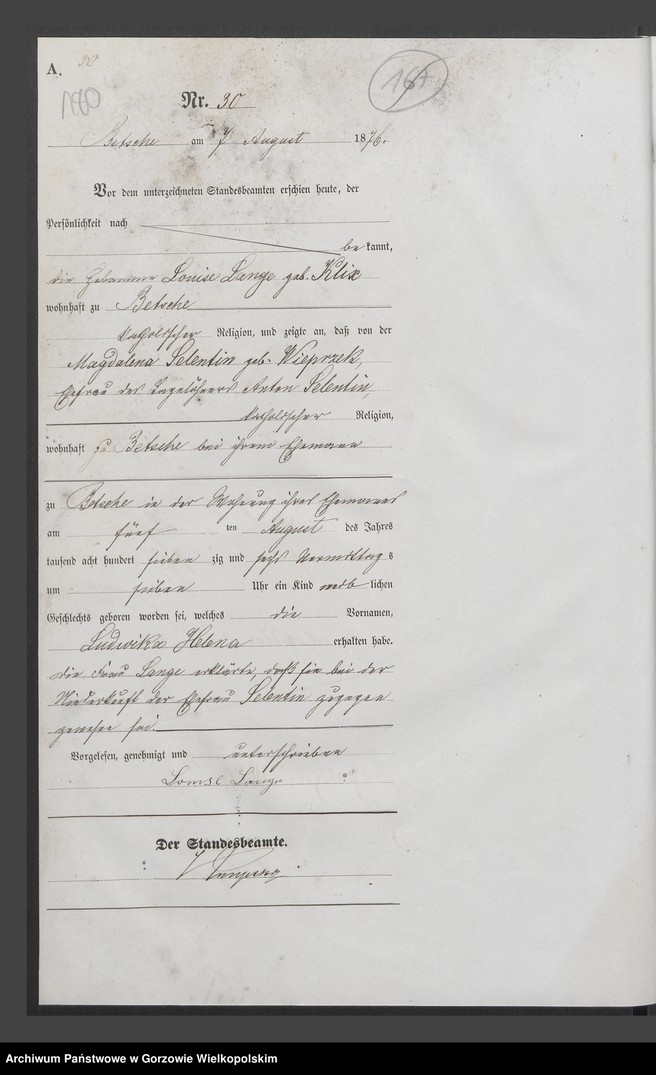 A.
30
180
164
Nr. 30
Betsche am 7 August 1876.
Vor dem unterzeichneten Standesbeamten erschien heute, der
Persönlichkeit nach
be kannt,
die Hebamme Louise Lange geb. Klix
wohnhaft zu Betsche
katholischer Religion, und zeigte an, daß von der
Magdalena Selentin geb. Wieprzek,
Ehefrau des Tagelöhners Anton Selentin,
katholischer Religion,
wohnhaft zu Betsche bei ihrem Ehemann
zu Betsche in der Wohnung ihres Ehemannes
am fünf ten August des Jahres
tausend acht hundert sieben zig und sechs Vormittag s
um sieben Uhr ein Kind weib lichen
Geschlechts geboren worden sei, welches die Vornamen,
Ludwika Helena erhalten habe.
Die Frau Lange erklärte, daß sie bei der
Niederkunft der Ehefrau Selentin zugegen
gewesen sei.
Vorgelesen, genehmigt und unterschrieben
Louise Lange
Der Standesbeamte.
Archiwum Państwowe w Gorzowie Wielkopolskim